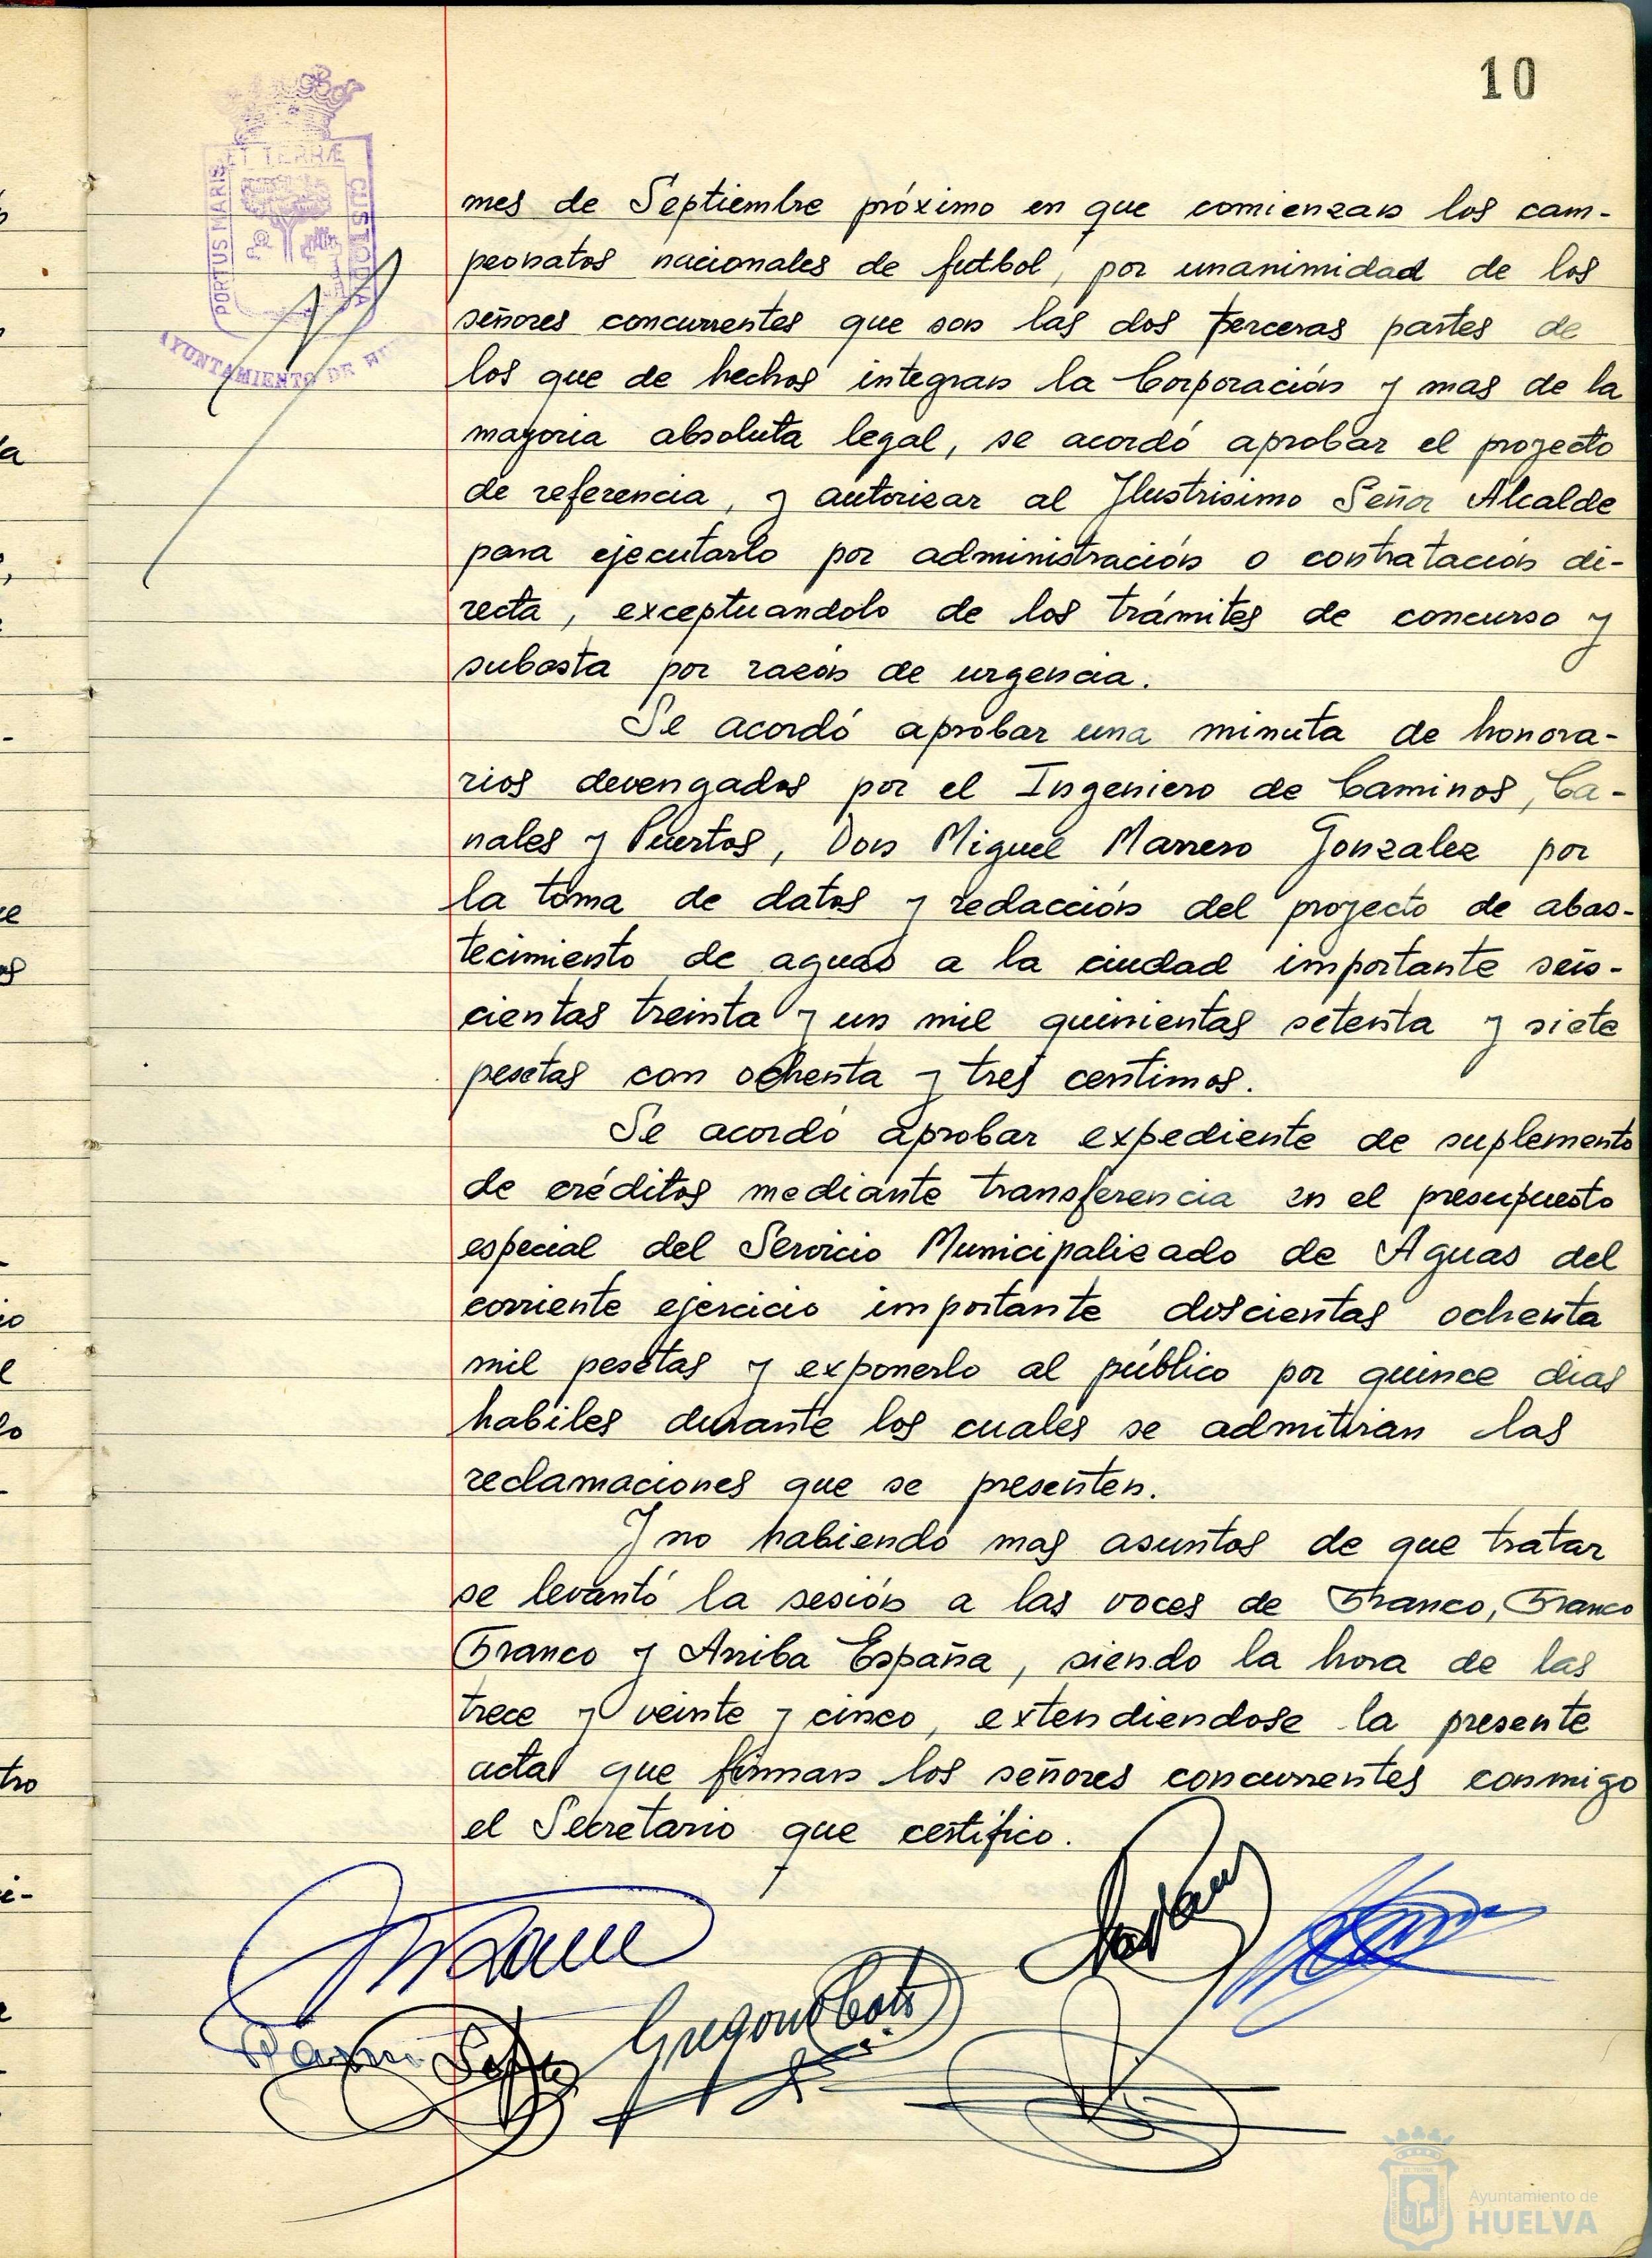 10
ET TERRÆ
PORTUS MARIS
CUSTODIA
AYUNTAMIENTO DE
mes de Septiembre próximo en que comienzan los cam-
peonatos nacionales de futbol, por unanimidad de los
señores concurrentes que son las dos terceras partes de
los que de hechos integran la Corporación y mas de la
mayoria absoluta legal, se acordó aprobar el proyecto
de referencia, y autorizar al Ilustrisimo Señor Alcalde
para ejecutarlo por administración o contratación di-
recta, exceptuandolo de los trámites de concurso y
subasta por razón de urgencia.
Se acordó aprobar una minuta de honora-
rios devengados por el Ingeniero de Caminos, Ca-
nales y Puertos, Don Miguel Marrero Gonzalez por
la toma de datos y redacción del proyecto de abas-
tecimiento de aguas a la ciudad importante seis-
cientas treinta y un mil quinientas setenta y siete
pesetas con ochenta y tres centimos.
Se acordó aprobar expediente de suplemento
de créditos mediante transferencia en el presupuesto
especial del Servicio Municipalizado de Aguas del
corriente ejercicio importante doscientas ochenta
mil pesetas y exponerlo al público por quince dias
habiles durante los cuales se admitiran las
reclamaciones que se presenten.
Y no habiendo mas asuntos de que tratar
se levantó la sesión a las voces de Franco, Franco
Franco y Arriba España, siendo la hora de las
trece y veinte y cinco, extendiendose la presente
acta que firman los señores concurrentes conmigo
el Secretario que certifico.
Ayuntamiento de
HUELVA